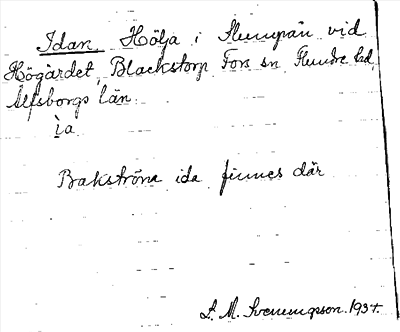 Idan, Hölja i Slumpån vid
Högärdet, Blackstorp Fors sn Flundre hd,
Älfsborgs län.
ìa
Bakströna ida finnes där
L. M. Svenungsson. 1934.